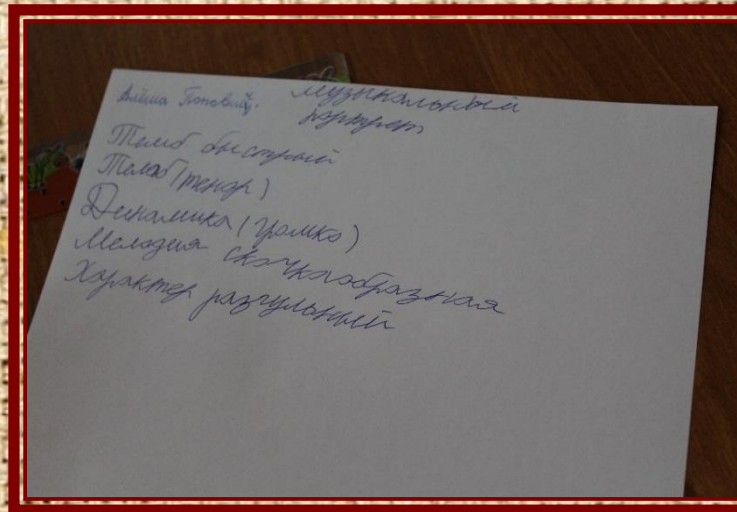 Алёша Попович.
музыкальный
портрет
Темб быстрый
Темб (тенор)
Динамика (громко)
Мелодия скачкаобразная
Характер разгульный